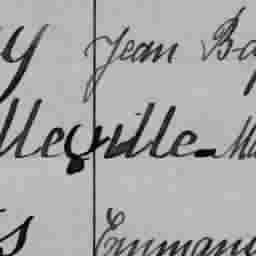 y Jean Ba
lleville Ma
s Emmanu